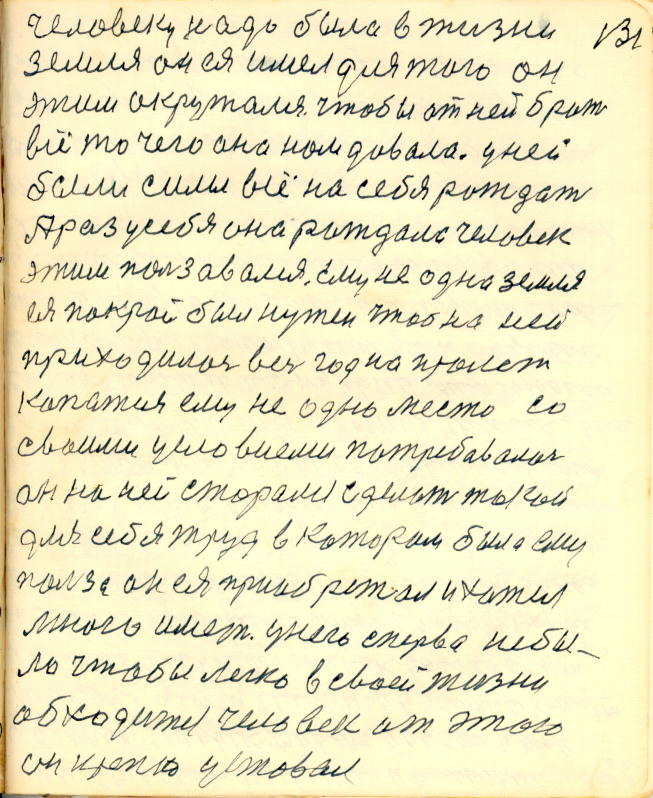 человеку надо была в жизни 131
земля он ея имел для того он
этим окружался. чтобы от ней брат
всё то чего она нам довала. у ней
были силы всё на себя рождат
А раз у себя она рождала человек
этим ползавался. ему не одна земля
ея покрой был нужен чтоб на ней
приходилос вес год на пролет
копатся ему не одно место со
своими условиеми потребавалос
он на ней сторалс сделат такой
для себя труд в котором была ему
полза он ея приобретал и хотел
много имет. у него сперва небы-
ло чтобы легко в своей жизни
обходитс человек от этого
он крепко уставал